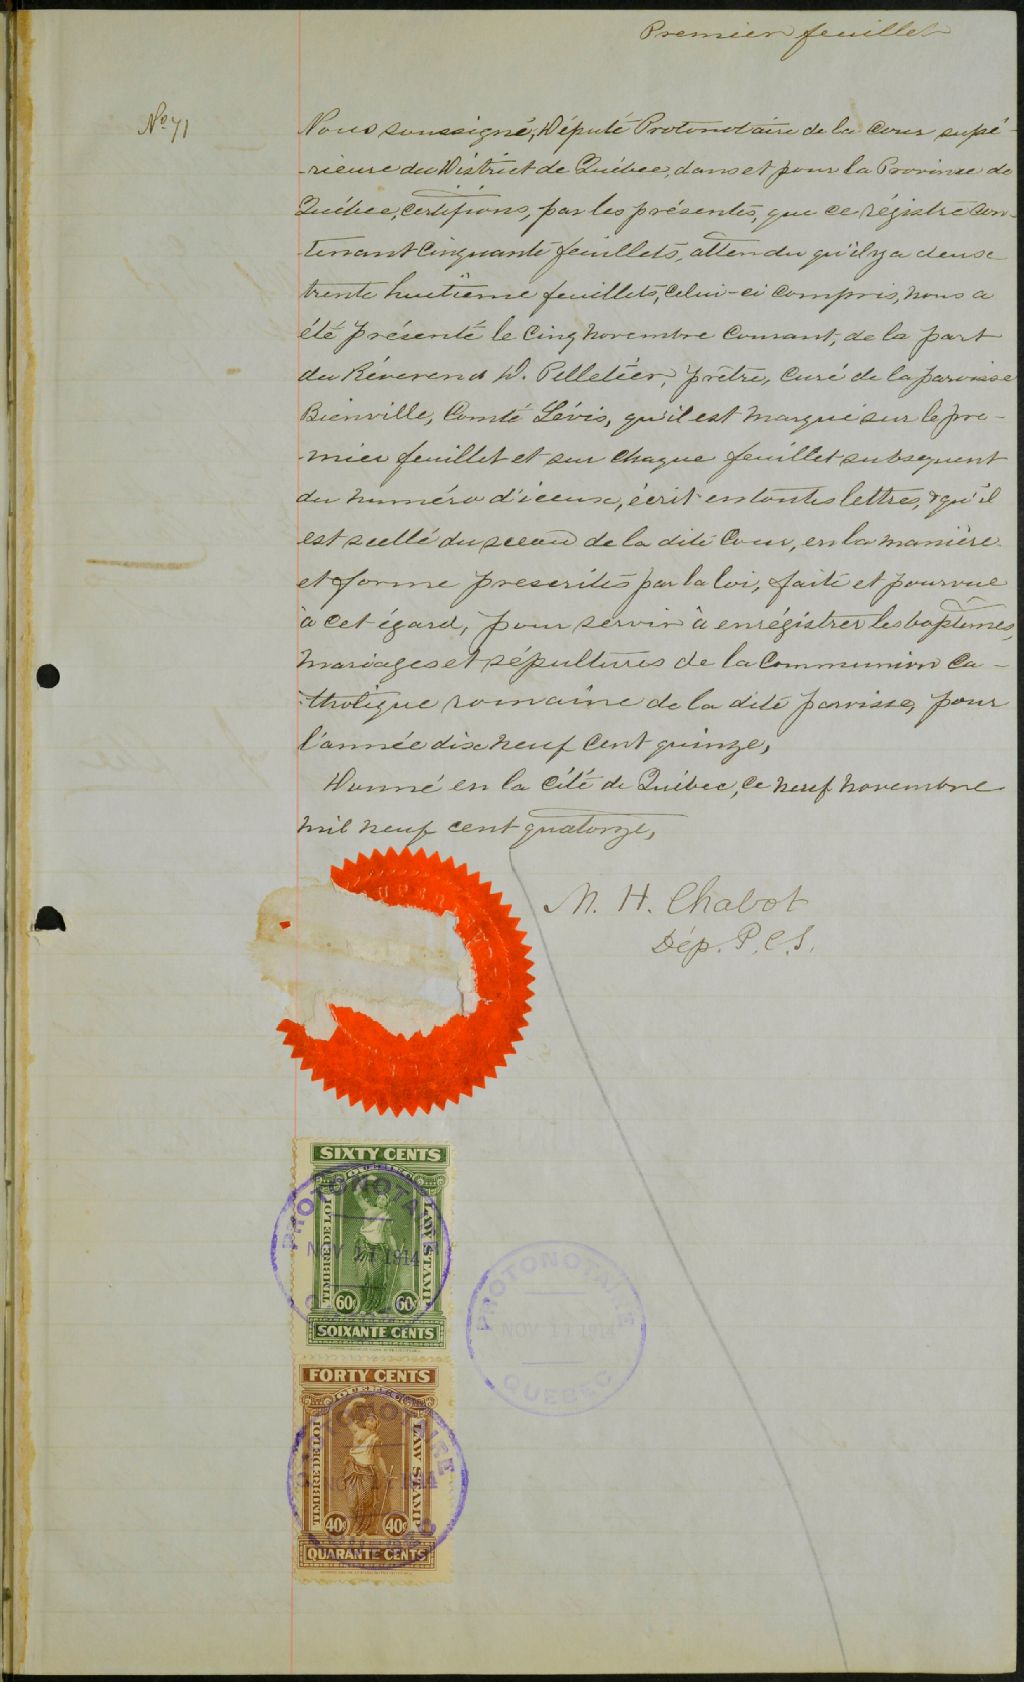 Premier feuillet
No 71
Nous soussigné, Député Protonotaire de la Cour supé-
-rieure du District de Québec, dans et pour la Province de
Québec, certifions, par les présentes, que ce régistre con-
tenant cinquante feuillets, attendu qu'il y a deux
trente huitième feuillets, celui-ci compris, nous a
été présenté le cinq novembre courant, de la part
du Révérend D. Pelletier, prêtre, curé de la paroisse
Bienville, Comté Lévis, qu'il est marqué sur le pre-
-mier feuillet et sur chaque feuillet subsequent
du numéro d'iceux, écrit en toutes lettres, & qu'il
est scellé du sceau de la dite Cour, en la manière
et forme prescrites par la loi, faite et pourvue
à cet égard, pour servir à enrégistrer les baptêmes,
mariages et sépultures de la Communion Ca-
-tholique romaine de la dite paroisse, pour
l'année dix neuf cent quinze,
Donné en la cité de Québec, ce neuf novembre
mil neuf cent quatorze,
M. H. Chabot
Dép. P.C.S.
SIXTY CENTS
TIMBRE DE LOI
LAW STAMP
60c 60c
SOIXANTE CENTS
PROTONOTAIRE
NOV 11 1914
PROTONOTAIRE
NOV 11 1914
QUEBEC
FORTY CENTS
TIMBRE DE LOI
LAW STAMP
40c 40c
QUARANTE CENTS